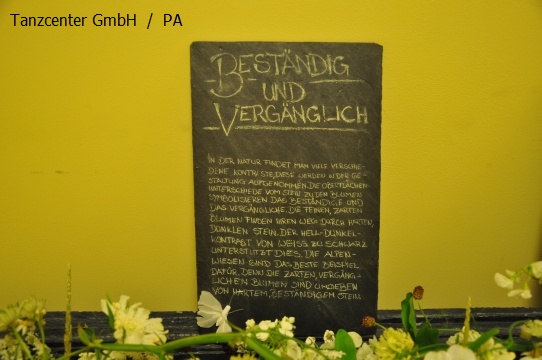 Tanzcenter GmbH / PA
BESTÄNDIG
UND
VERGÄNGLICH
IN DER NATUR FINDET MAN VIELE VERSCHIE-
DENE KONTRASTE, DIESE WERDEN IN DER GE-
STALTUNG AUFGENOMMEN. DIE OBERFLÄCHEN-
UNTERSCHIEDE VOM STEIN ZU DEN BLUMEN
SYMBOLISIEREN DAS BESTÄNDIGE UND
DAS VERGÄNGLICHE. DIE FEINEN, ZARTEN
BLUMEN FINDEN IHREN WEG DURCH HARTEN,
DUNKLEN STEIN. DER HELL-DUNKEL-
KONTRAST VON WEISS ZU SCHWARZ
UNTERSTÜTZT DIES. DIE ALPEN-
WIESEN SIND DAS BESTE BEISPIEL
DAFÜR, DENN DIE ZARTEN, VERGÄNG-
LICHEN BLUMEN SIND UMGEBEN
VON HARTEM, BESTÄNDIGEM STEIN